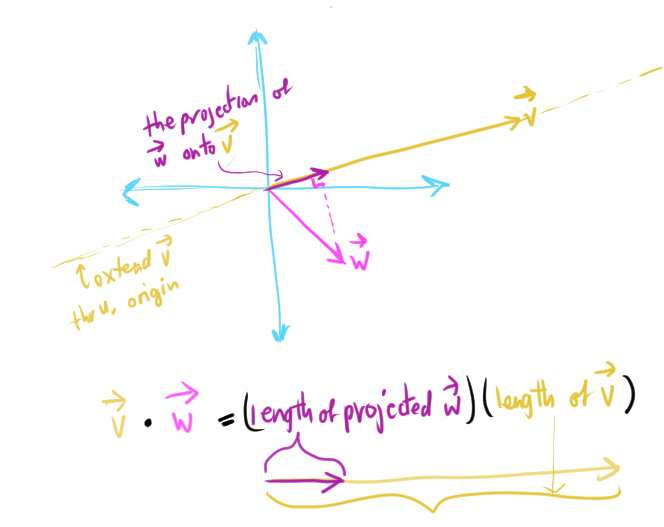 the projection of
w⃗ onto v⃗
v⃗
w⃗
extend v⃗
thru origin
v⃗ · w⃗ = (length of projected w⃗)(length of v⃗)